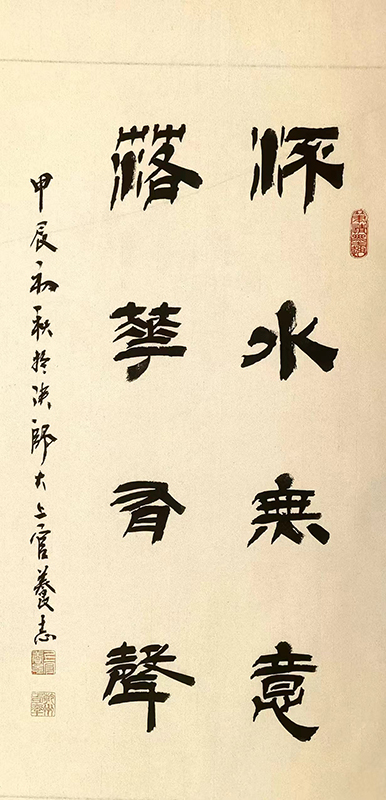 流水無意
落華有聲
甲辰初秋於陝師大上官養志